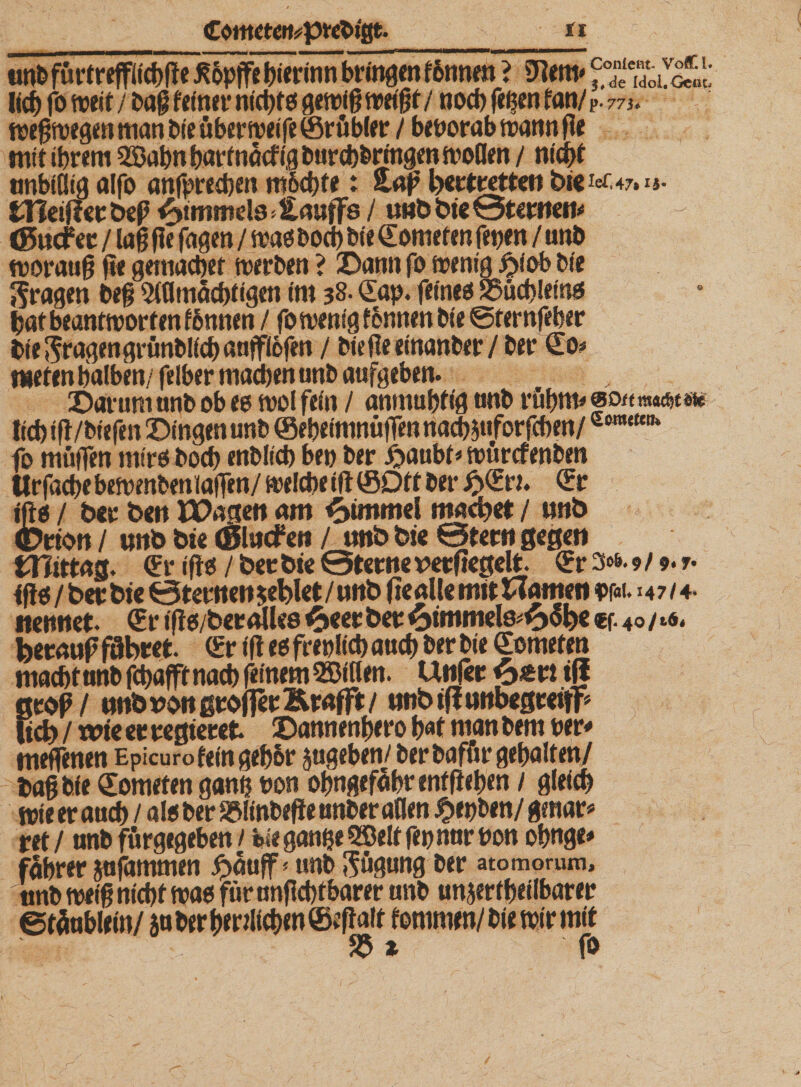 Cometen⸗Predigt. 11
und fürtrefflichste Köpffe hierinn bringen können? Nem⸗
Conient. Voss. l.
lich so weit / daß keiner nichts gewiß weißt / noch setzen kan/
3. de Idol. Gent.
p. 773.
weßwegen man die überweise Grübler / bevorab wann sie
mit ihrem Wahn hartnäckig durchdringen wollen / nicht
unbillig also ansprechen möchte: Laß hertretten die
Ies. 47. 13.
Meister deß Himmels⸗Lauffs / und die Sternen⸗
Gucker / laß sie sagen / was doch die Cometen seyen / und
worauß sie gemachet werden? Dann so wenig Hiob die
Fragen deß Allmächtigen im 38. Cap. seines Büchleins
hat beantworten können / so wenig können die Sternseher
die Fragen gründlich aufflösen / die sie einander / der Co⸗
meten halben/ selber machen und aufgeben.
Darum und ob es wol fein / anmuhtig und rühm⸗
GOtt macht die
lich ist/diesen Dingen und Geheimnüssen nachzuforschen/
Cometen.
so müssen mirs doch endlich bey der Haubt⸗würckenden
Ursache bewenden lassen/ welche ist GOtt der HErr. Er
ists / der den Wagen am Himmel machet / und
Orion / und die Glucken / und die Stern gegen
Mittag. Er ists / der die Sterne versiegelt. Er
Job. 9/ 9. 7.
ists / der die Sternen zehlet / und sie alle mit Namen
Psal. 147/4.
nennet. Er ists/der alles Heer der Himmels⸗Höhe
Es. 40/26.
herauß führet. Er ist es freylich auch der die Cometen
macht und schafft nach seinem Willen. Unser Herr ist
groß / und von grosser Krafft / und ist unbegreiff⸗
lich / wie er regieret. Dannenhero hat man dem ver⸗
messenen Epicuro kein gehör zugeben/ der dafür gehalten/
daß die Cometen gantz von ohngefähr entstehen / gleich
wie er auch / als der Blindeste under allen Heyden/ genar⸗
ret / und fürgegeben / die gantze Welt sey nur von ohnge⸗
fährer zusammen Häuff⸗ und Fügung der atomorum,
und weiß nicht was für unsichtbarer und unzertheilbarer
Stäublein/ zu der herrlichen Gestalt kommen/ die wir mit
B 2 so